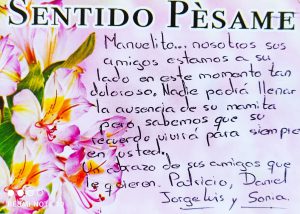 SENTIDO PÈSAME
Manuelito... nosotros sus
amigos estamos a su
lado en este momento tan
doloroso, Nadie podrá llenar
la ausencia de su mamita
pero, sabemos que su
recuerdo vivirá para siempre
en usted.
Un abrazo de sus amigos que
le quieren. Patricio, Daniel
Jorge Luis y Sonia.